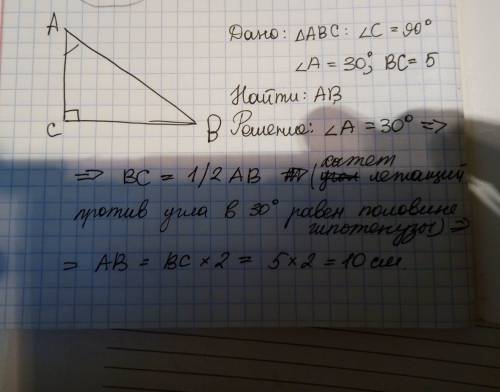 A
C
B
Дано: ΔABC: ∠C = 90°
∠A = 30°; BC = 5
Найти: AB
Решение: ∠A = 30° =>
=> BC = 1/2 AB (катет лежащий
против угла в 30° равен половине
гипотенузы) =>
=> AB = BC × 2 = 5 × 2 = 10 см.